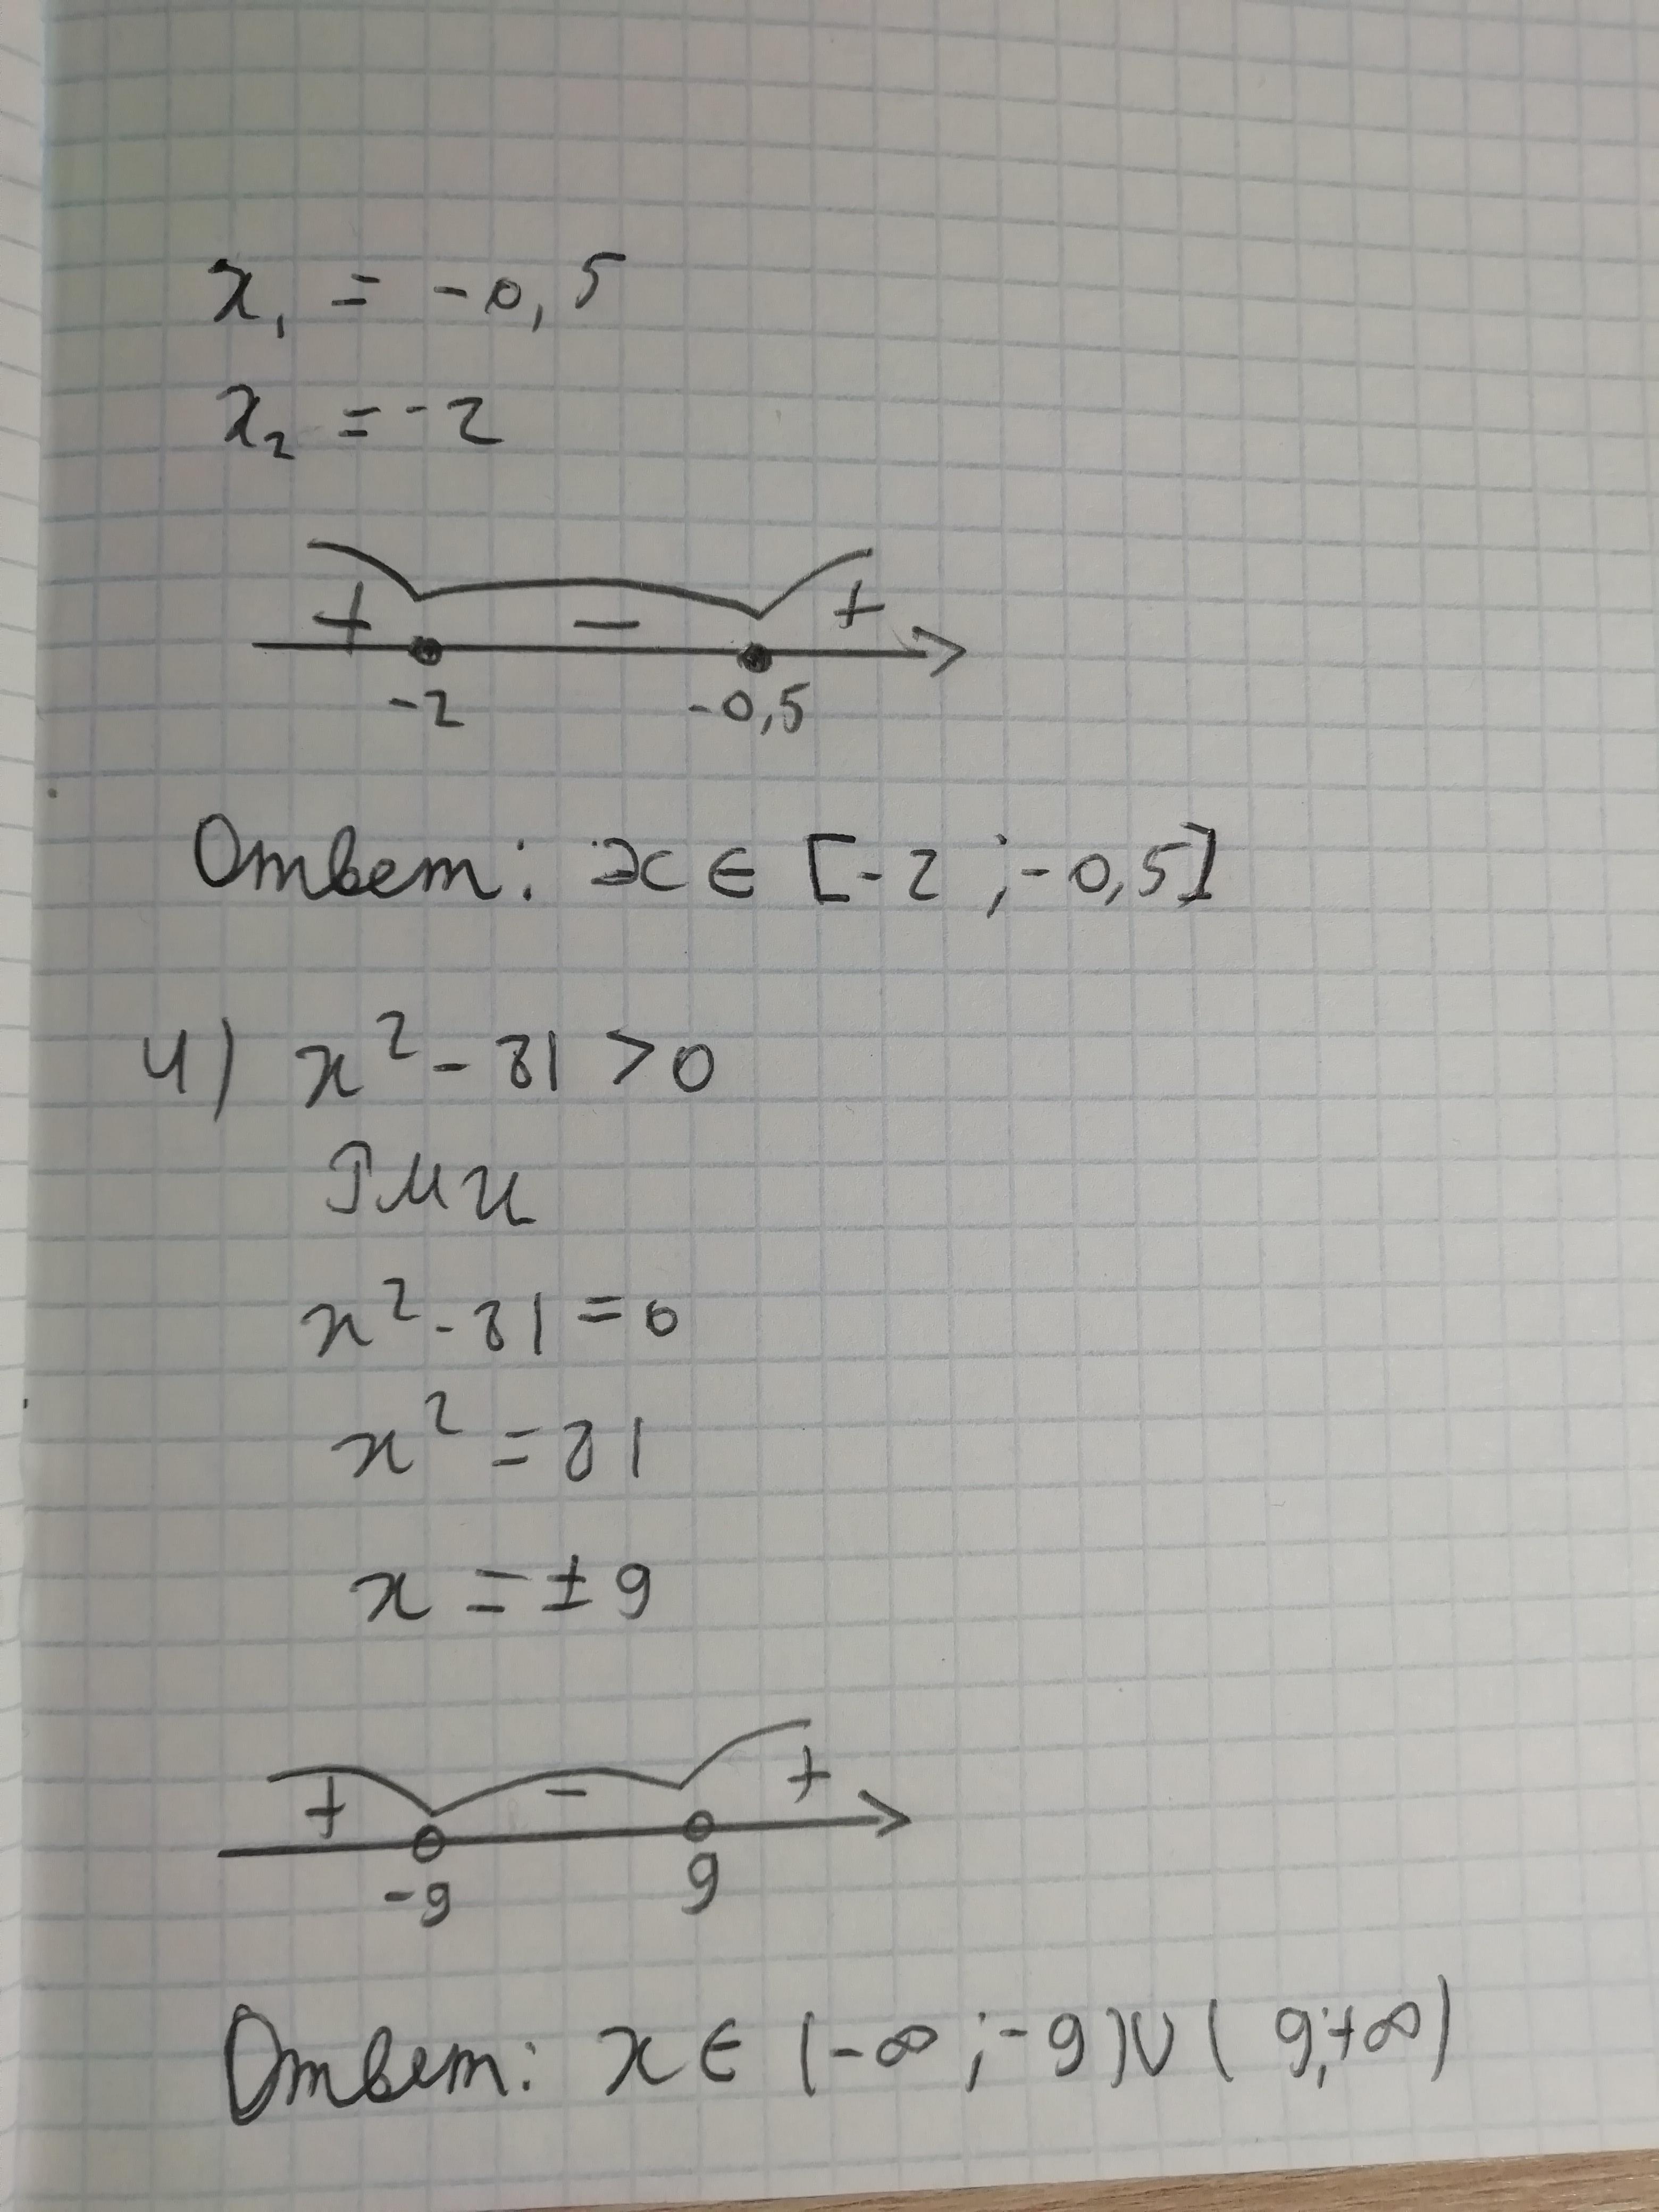 x₁ = -0,5
x₂ = -2
+ - +
-2 -0,5
Ответ: x ∈ [-2 ; -0,5]
4) x² - 81 > 0
РМИ
x² - 81 = 0
x² = 81
x = ± 9
+ - +
-9 9
Ответ: x ∈ (-∞ ; -9) ∪ ( 9; +∞)